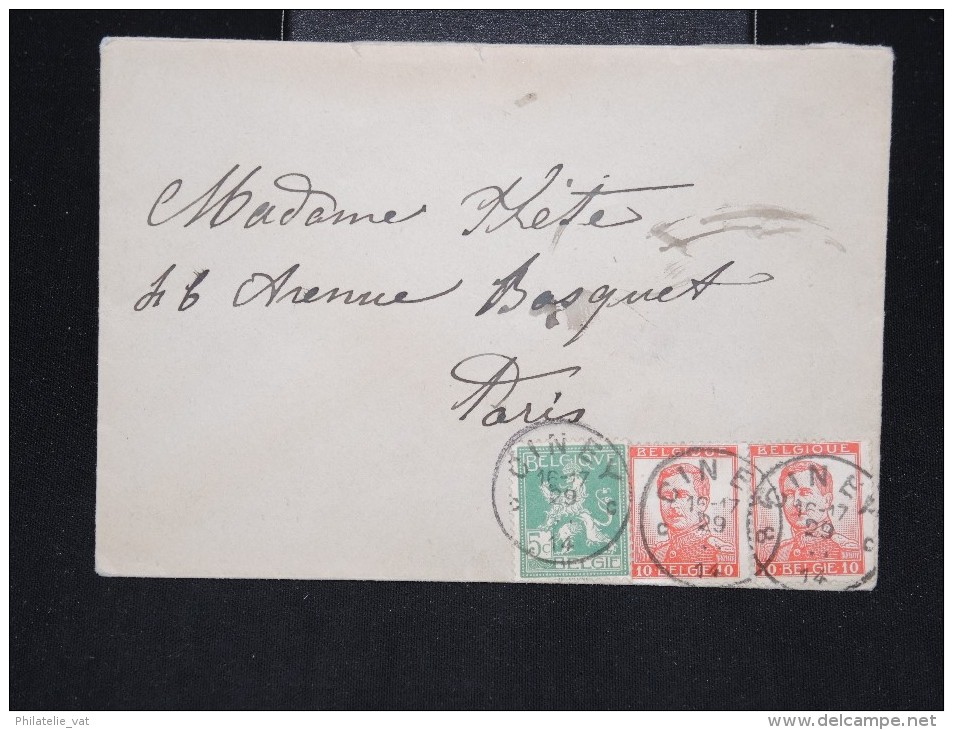 Madame Kéte
46 Avenue Bosquet
Paris
CINEY
16-17
29
14
CINEY
16-17
29
14
CINEY
16-17
29
14
BELGIQUE
5c
BELGIË
BELGIQUE
10 BELGIE 10
BELGIQUE
10 BELGIE 10
Philatelie_vat
www.delcampe.net